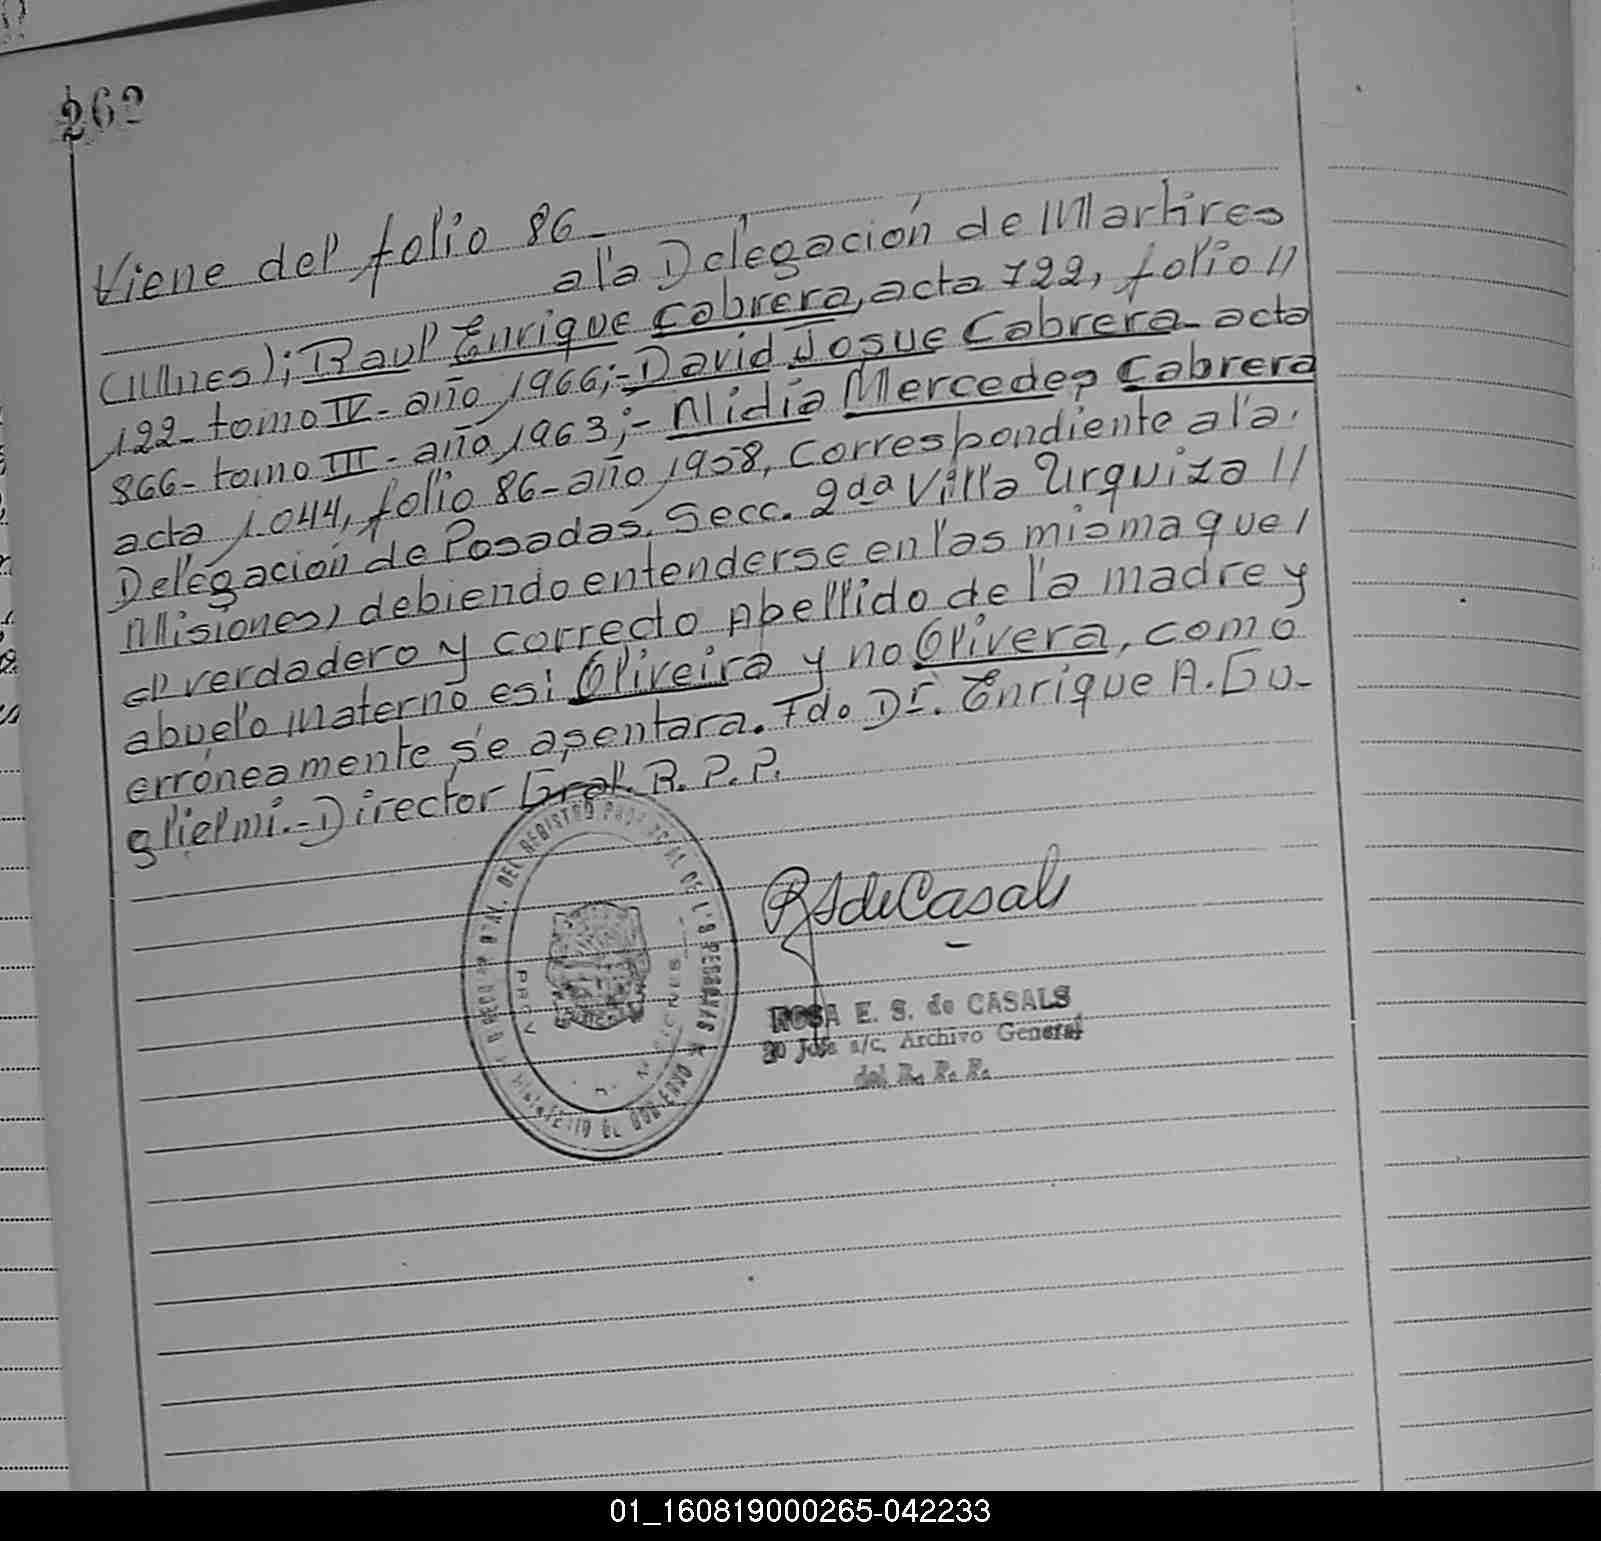 262
Viene del folio 86-
a la Delegación de Martires
(Mnes); Raul Enrique Cabrera, acta 722, folio //
122- tomo IV- año 1966;- David Josue Cabrera- acta
866- tomo III- año 1963;- Nidia Mercedes Cabrera
acta 1.044, folio 86- año 1958, correspondiente a la
Delegación de Posadas. Secc. 2da Villa Urquiza //
Misiones) debiendo entenderse en las misma que /
el verdadero y correcto Apellido de la madre y
abuelo materno es: Oliveira y no Olivera, como
erróneamente se asentara. Fdo Dr. Enrique A. Gu-
glielmi.- Director Gral. R. P. P.
DEL REGISTRO PROVINCIAL DE LAS PERSONAS
PROV. MISIONES
MINISTERIO DE GOBIERNO
RSdeCasals
ROSA E. S. de CASALS
a/c. Archivo General
del R. P. P.
01_160819000265-042233